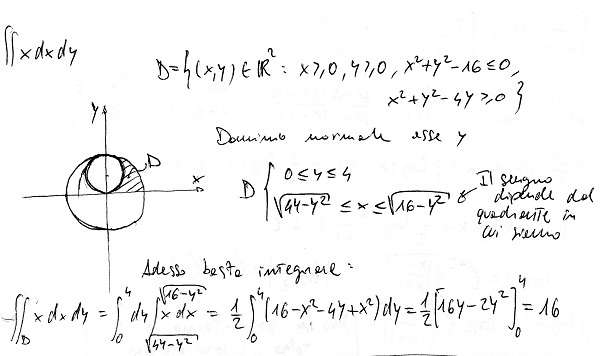 ∬ x dx dy
D = {(x,y) ∈ ℝ² : x ≥ 0, y ≥ 0, x² + y² - 16 ≤ 0,
x² + y² - 4y ≥ 0}
Dominio normale asse y
y
D
x
D { 0 ≤ y ≤ 4
√(4y-y²) ≤ x ≤ √(16-y²)
Il segno
dipende dal
quadrante in
cui siamo
Adesso basta integrare:
∬_D x dx dy = ∫_0^4 dy ∫_{√(4y-y²)}^{√(16-y²)} x dx = 1/2 ∫_0^4 (16-x²-4y+x²) dy = 1/2 [16y-2y²]_0^4 = 16